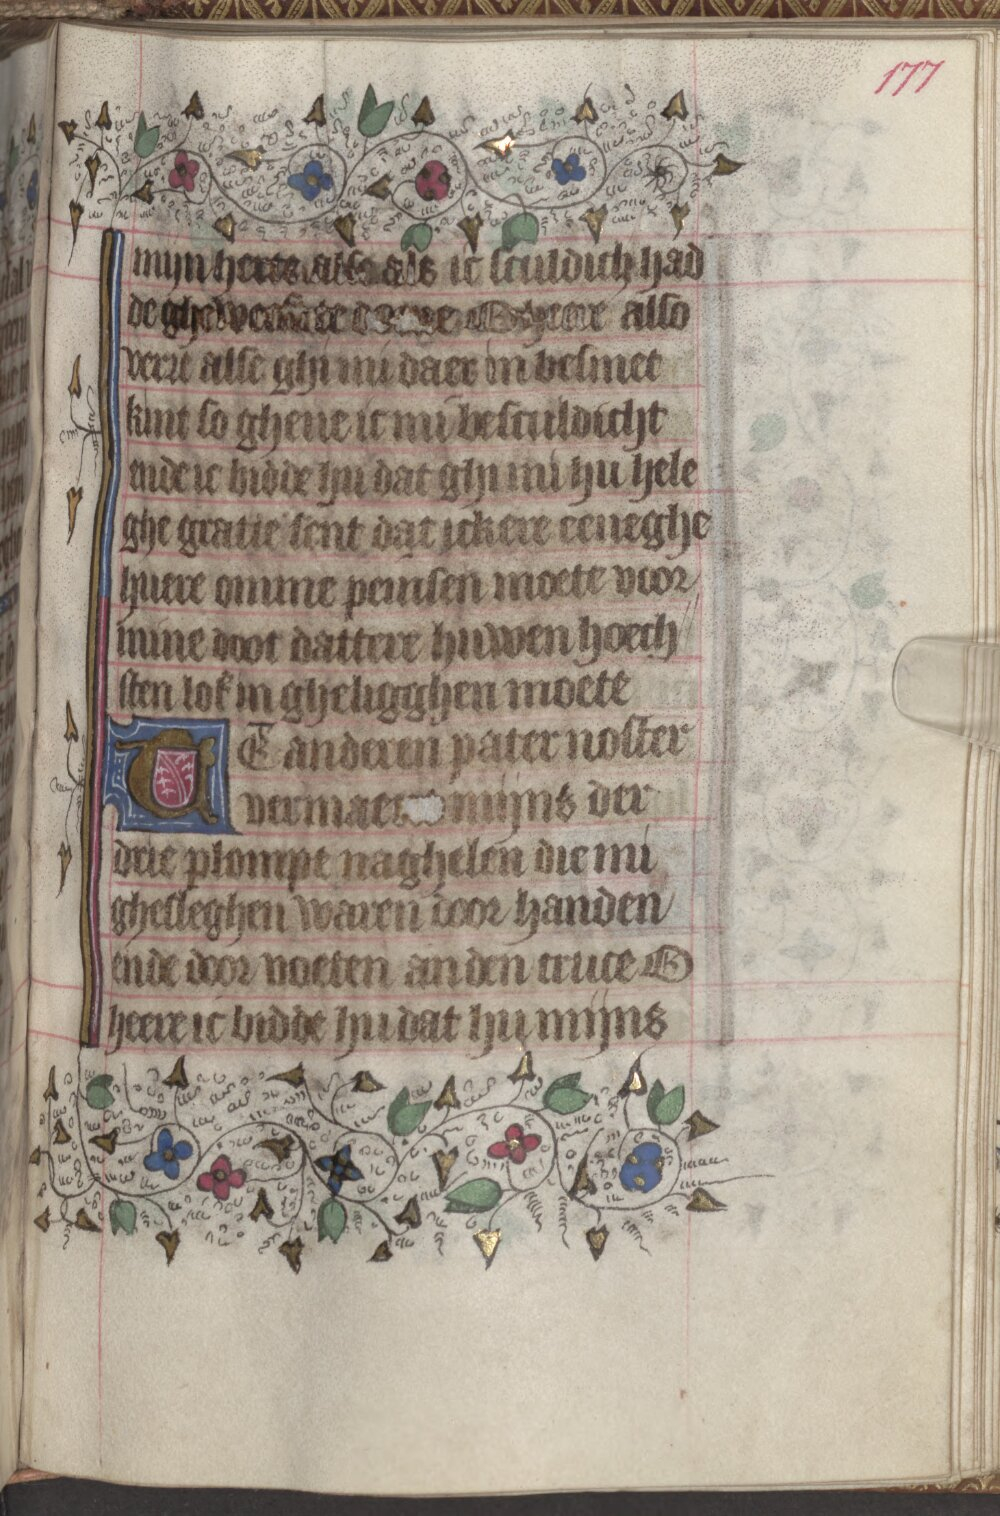 177
mijn herte also als ic sculdich had
de gheweest O heere also
verre alse ghi mi daer in besmet
kint so gheue ic mi besculdicht
ende ic bidde hu dat ghi mi hu hele
ghe gratie sent dat ickere eeneghe
huere omme peinsen moete voor
mine doot dattere huwen hoech
sten lof in gheligghen moete
TE anderen pater noster
vermaen mijns der
drie plompe naghelen die mi
ghesleghen waren door handen
ende door voeten an den cruce O
heere ic bidde hu dat hu mijns